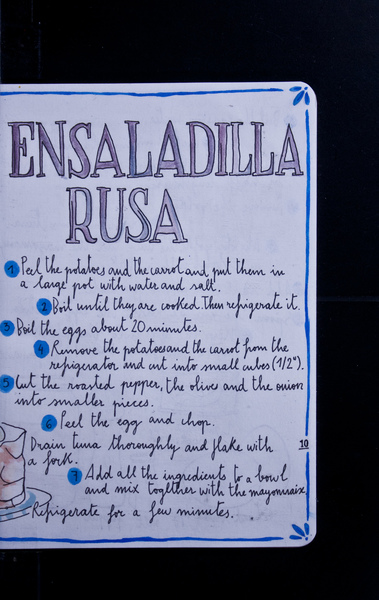 ENSALADILLA
RUSA
1 Peel the potatoes and the carrot and put them in
a large pot with water and salt.
2 Boil until they are cooked. Then refrigerate it.
3 Boil the eggs about 20 minutes.
4 Remove the potatoes and the carrot from the
refrigerator and cut into small cubes (1/2").
5 Cut the roasted pepper, the olives and the onion
into smaller pieces.
6 Peel the egg and chop.
Drain tuna thoroughly and flake with
a fork.
10
7 Add all the ingredients to a bowl
and mix together with the mayonnaise
Refrigerate for a few minutes.